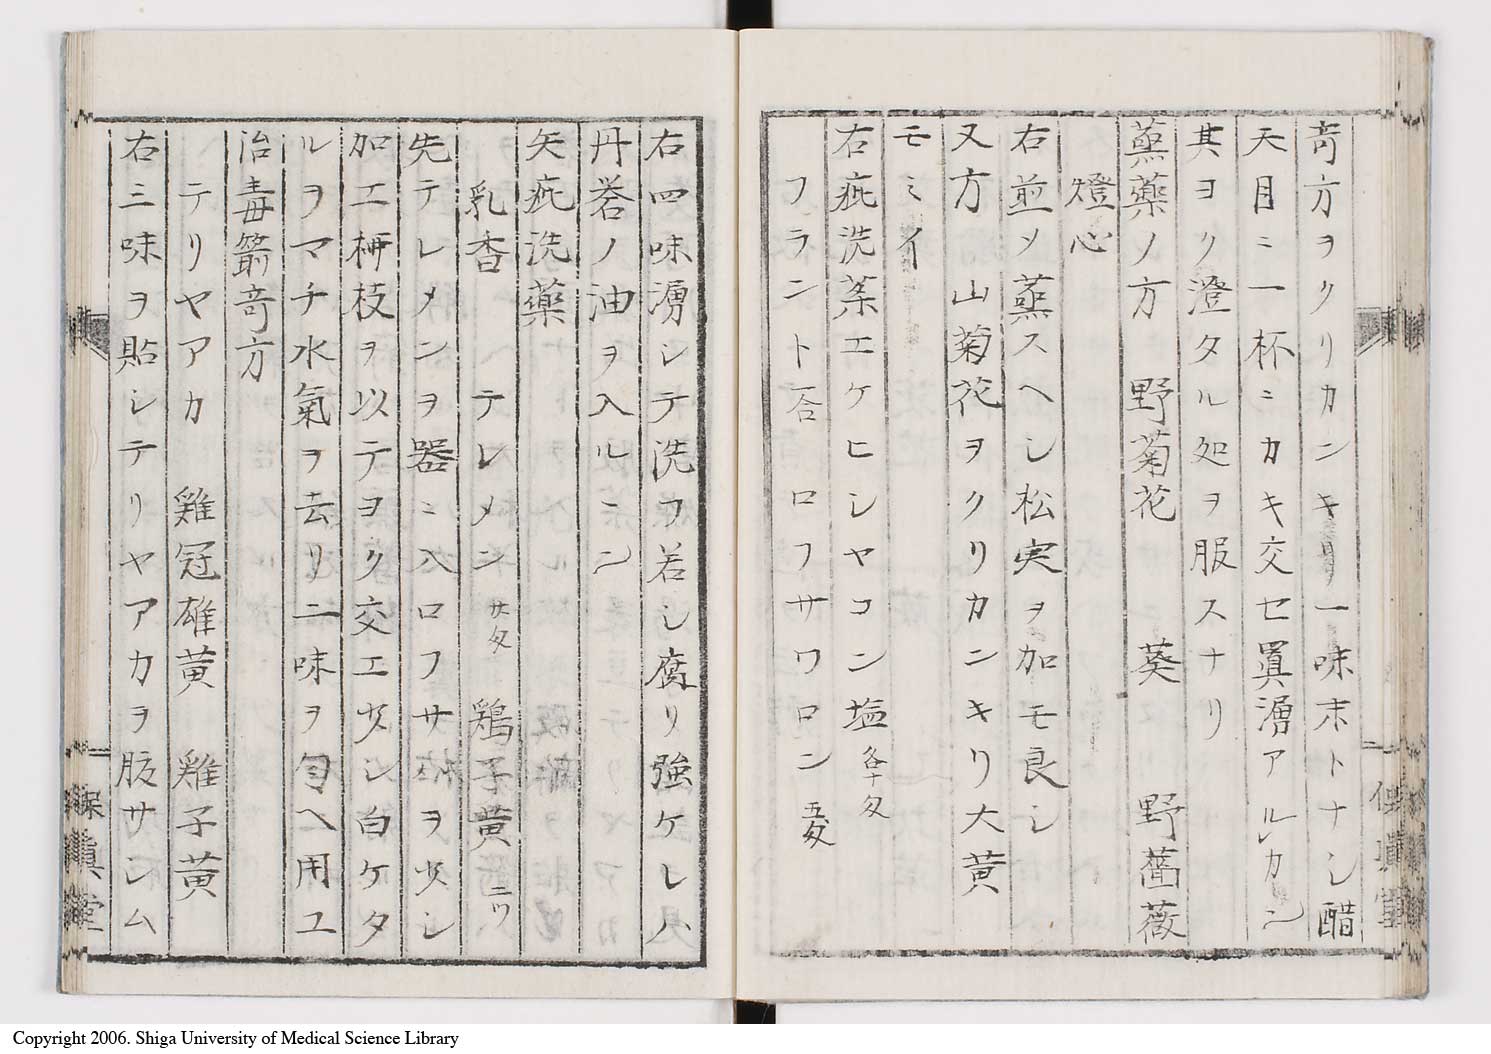 竒方ヲクリカンキ 一味末トナシ醋
天目ニ一杯ミカキ交セ眞湧アルレカシ
其ヨク澄タル処ヲ服スナリ
蒸藥ノ方 野菊花 葵 野薔薇
燈心
右煎メ蒸スヘシ松実ヲ加モ良シ
又方 山菊花ヲクリカンキリ大黄
モミイ
右疵洗茶エケヒシヤコン塩 各十匁
フラント答ロフサワロン 五匁
右四味湧シテ洗フ若シ腐リ強ケレハ
丹礬ノ油ヲ入ルヽ
矢疵洗藥
乳香 テレメン サ匁 鶏子黄 ニツ
先テレメンヲ器ニ入ロフサ極ヲ炊シ
加エ栁枝ヲ以テヲク交エ炊シ白ケタ
ルヲマチ水氣ヲ去リ二味ヲ匀ヘ用ユ
治毒箭竒方
テリヤアカ 雞冠雄黄 雞子黄
右三味ヲ貼シテリヤアカヲ服サシム
保眞堂
Copyright 2006. Shiga University of Medical Science Library